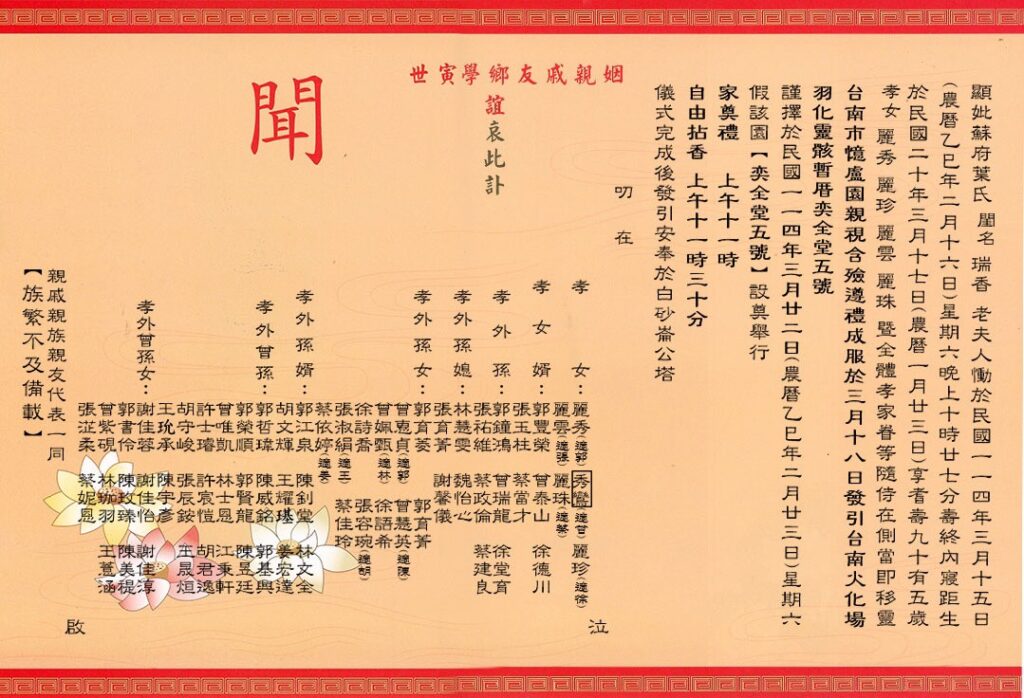 顯妣蘇府葉氏 閨名 瑞香 老夫人慟於民國一一四年三月十五日
(農曆乙巳年二月十六日)星期六晚上十時廿七分壽終內寢距生
於民國二十年三月十七日(農曆一月廿三日)享耆壽九十有五歲
孝女 麗秀 麗珍 麗雲 麗珠 暨全體孝家眷等隨侍在側當即移靈
台南市憶盧園親視含殮遵禮成服於三月十八日發引台南火化場
羽化靈骸暫厝奕全堂五號
謹擇於民國一一四年三月廿二日(農曆乙巳年二月廿三日)星期六
假該園【奕全堂五號】設奠舉行
家奠禮 上午十一時
自由拈香 上午十一時三十分
儀式完成後發引安奉於白砂崙公塔
叨在
姻親戚友鄉學寅世
誼哀此訃
聞
孝女：麗秀(適郭) 秀鸞(適曾) 麗珍(適徐)
麗雲(適張) 麗珠(適蔡)
孝女婿：郭豐榮 曾泰山 徐德川
張玉桂 蔡當才
孝外孫：郭鐘鴻 曾瑞龍 徐堂育
張祐維 蔡政倫 蔡建良
孝外孫媳：林慧雯 魏怡心
張育菁 謝馨儀
孝外孫女：郭育菱 郭育菁
曾惠貞(適郭) 曾慧英(適陳)
曾姵甄(適林) 徐語希
徐詩喬 張容琬(適胡)
張淑絹(適王) 蔡佳玲
蔡依婷(適姜)
孝外孫婿：郭江泉 陳釗堂 林文全
胡文輝 王耀琪 姜宏達
孝外曾孫：郭哲瑋 陳威銘 郭基興
郭榮順 郭賢龍 陳昱廷
曾唯凱 林士恩 江秉軒
許士璿 許宸愷 胡君逸
胡守峻 張辰銨 王晟烜
王玧承 陳宇彥
孝外曾孫女：謝佳蓉 謝佳怡 謝佳淳
郭書伶 陳玟臻 陳美禔
曾紫硯 林珈羽 王薏涵
張涖柔 蔡妮恩
泣啟
親戚親族親友代表一同
【族繁不及備載】